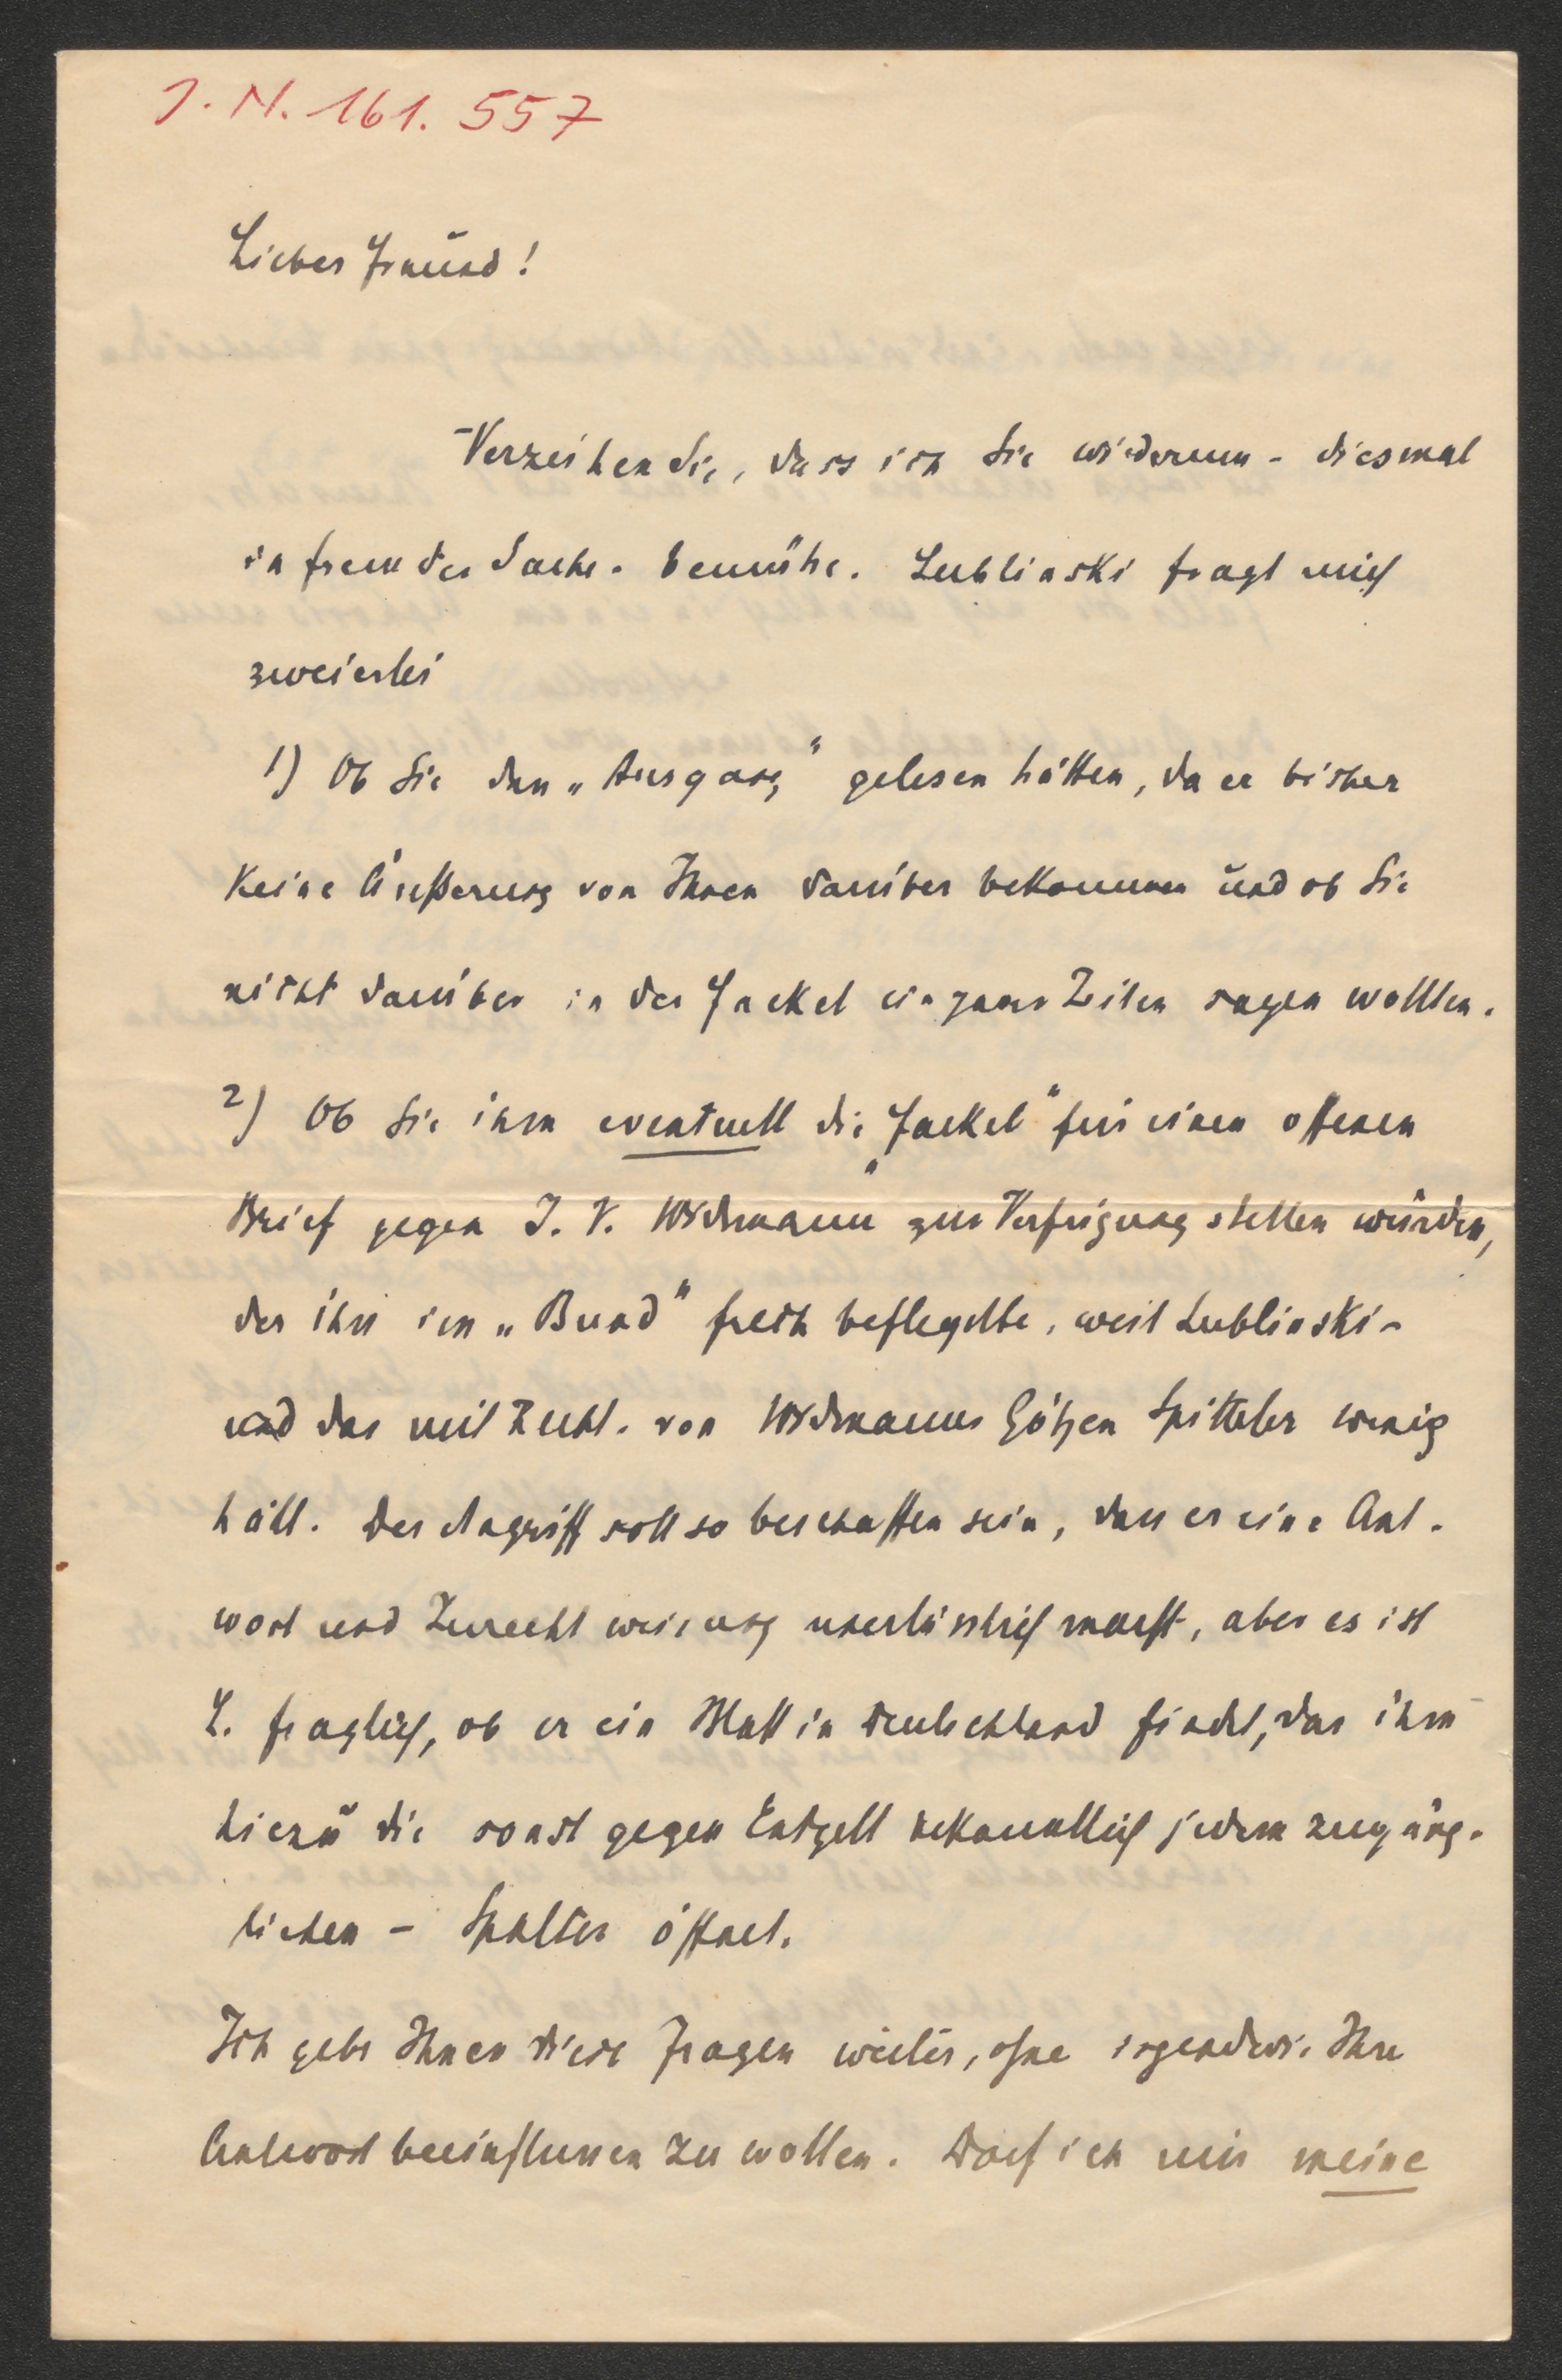 J. N. 161. 557
Lieber Freund!
Verzeihen Sie, dass ich Sie wiederum - diesmal
in fremder Sache - bemühe. Lublinski fragt mich
zweierlei
1) Ob Sie den „Ausgang“ gelesen hätten, da er bisher
keine Äußerung von Ihnen darüber bekommen und ob Sie
nicht darüber in der Fackel ein paar Zeilen sagen wollten.
2) Ob Sie ihm eventuell die „Fackel“ für einen offenen
Brief gegen J. V. Widmann zur Verfügung stellen würden,
der ihn im „Bund“ frech beflegelte, weil Lublinski -
und das mit Recht - von Widmanns Götzen Spitteler wenig
hält. Der Angriff soll so beschaffen sein, dass er eine Ant-
wort und Zurechtweisung unerlässlich macht, aber es ist
L. fraglich, ob er ein Blatt in Deutschland findet, das ihm
hiezu die sonst gegen Entgelt bekanntlich jedem zugäng-
lichen - Spalten öffnet.
Ich gebe Ihnen diese Fragen weiter, ohne irgendwie Ihre
Antwort beeinflussen zu wollen. Darf ich mir meine